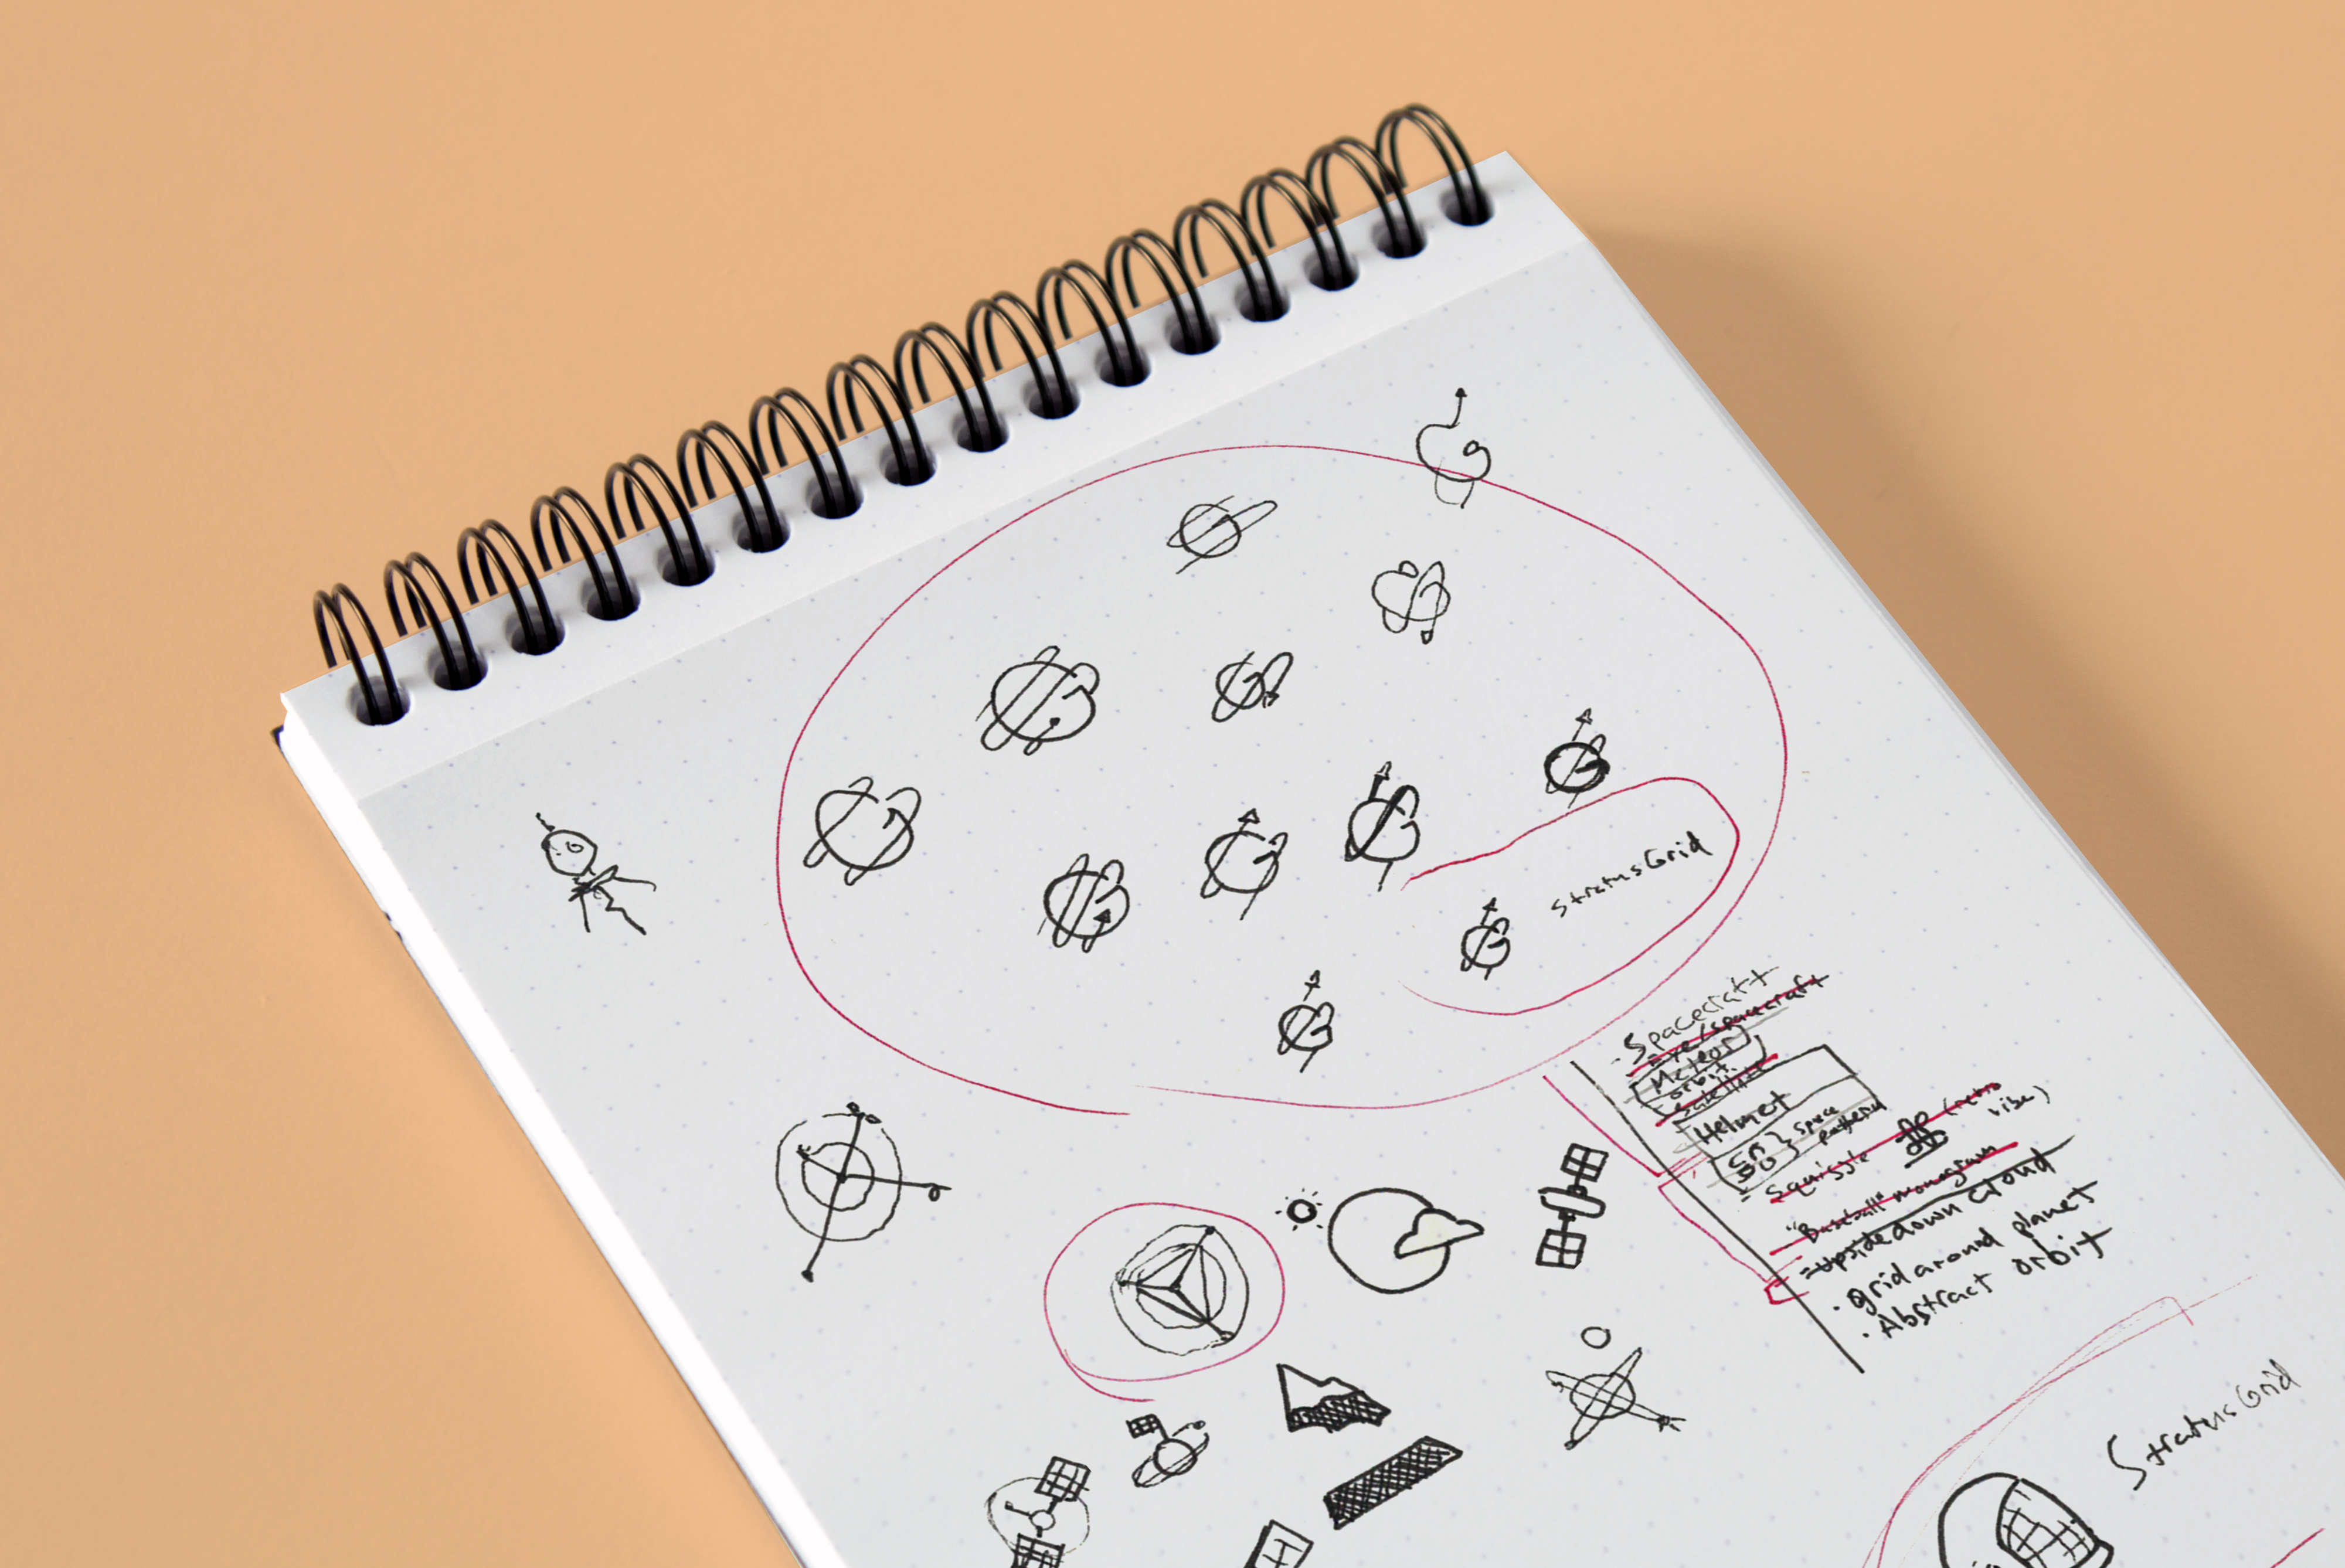 stratusGrid
Spacecraft
Eye/spacecraft
Meteor
orbit
Satellite
Helmet
space
pattern
Squiggle (retro
vibe)
"Baseball" monogram
upside down cloud
• grid around planet
• Abstract orbit
StratusGrid